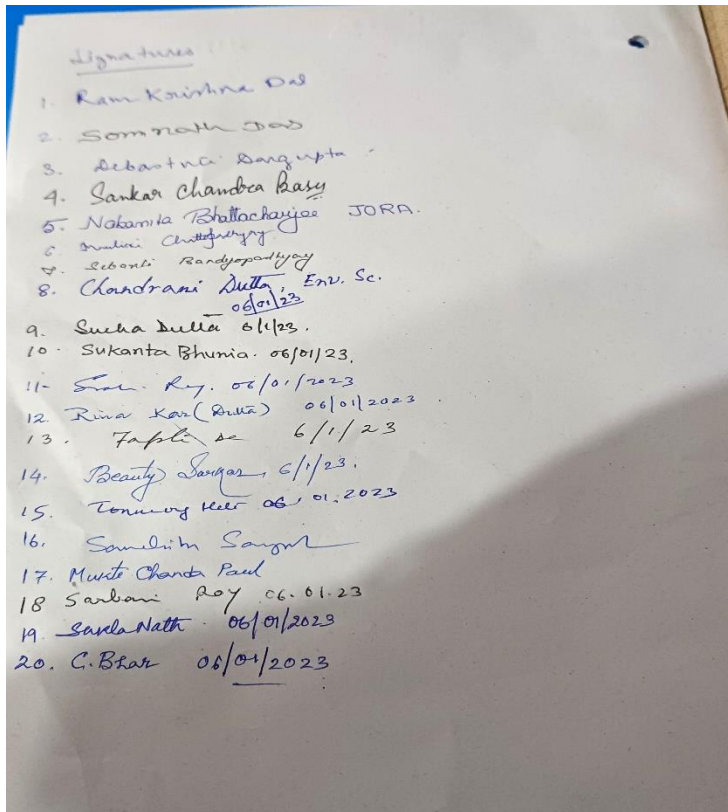 Signatures
1. Ram Krishna Das
2. Somnath Das
3. Dasgupta
4. Sankar Chandra Basu
5. Nabamita Bhattacharjee JORA.
6. Chattopadhyay
7. Sebanti Bandyopadhyay
8. Chandrani Dutta, Env. Sc.
06/01/23
9. Dutta 6/1/23.
10. Sukanta Bhunia. 06/01/23.
11- Roy. 06/01/2023
12. Rina Kar (Dutta) 06/01/2023
13. De 6/1/23
14. Beauty Sarkar, 6/1/23.
15. 06.01.2023
16.
17. Chanda Paul
18 Sarbani Roy 06.01.23
19. Nath. 06/01/2023
20. C. Bhar 06/01/2023